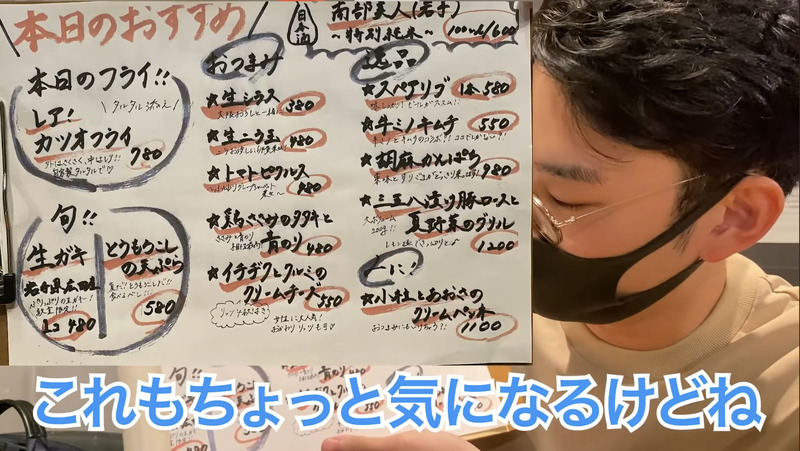 本日のおすすめ
日本酒
南部美人(岩手)
〜特別純米〜
100ml/600
本日のフライ!!
タルタル添え
レア!
カツオフライ
780
旬!!
生ガキ
岩手県広田産
1コ 480
とうもろこし
の天ぷら
580
おつまみ
★生シラス
380
★生ニラ玉
480
★トマトピクルス
480
★鶏ささみのタタキと
青のり 480
★イチヂクとクルミの
クリームチーズ 550
女性に大人気!
逸品
★スペアリブ 1本 580
★牛ミノキムチ
550
★胡麻かんぱち
980
★三五八漬り豚ロースと
夏野菜のグリル
1200
〆に!
★小柱とあおさの
クリームペンネ
1100
これもちょっと気になるけどね